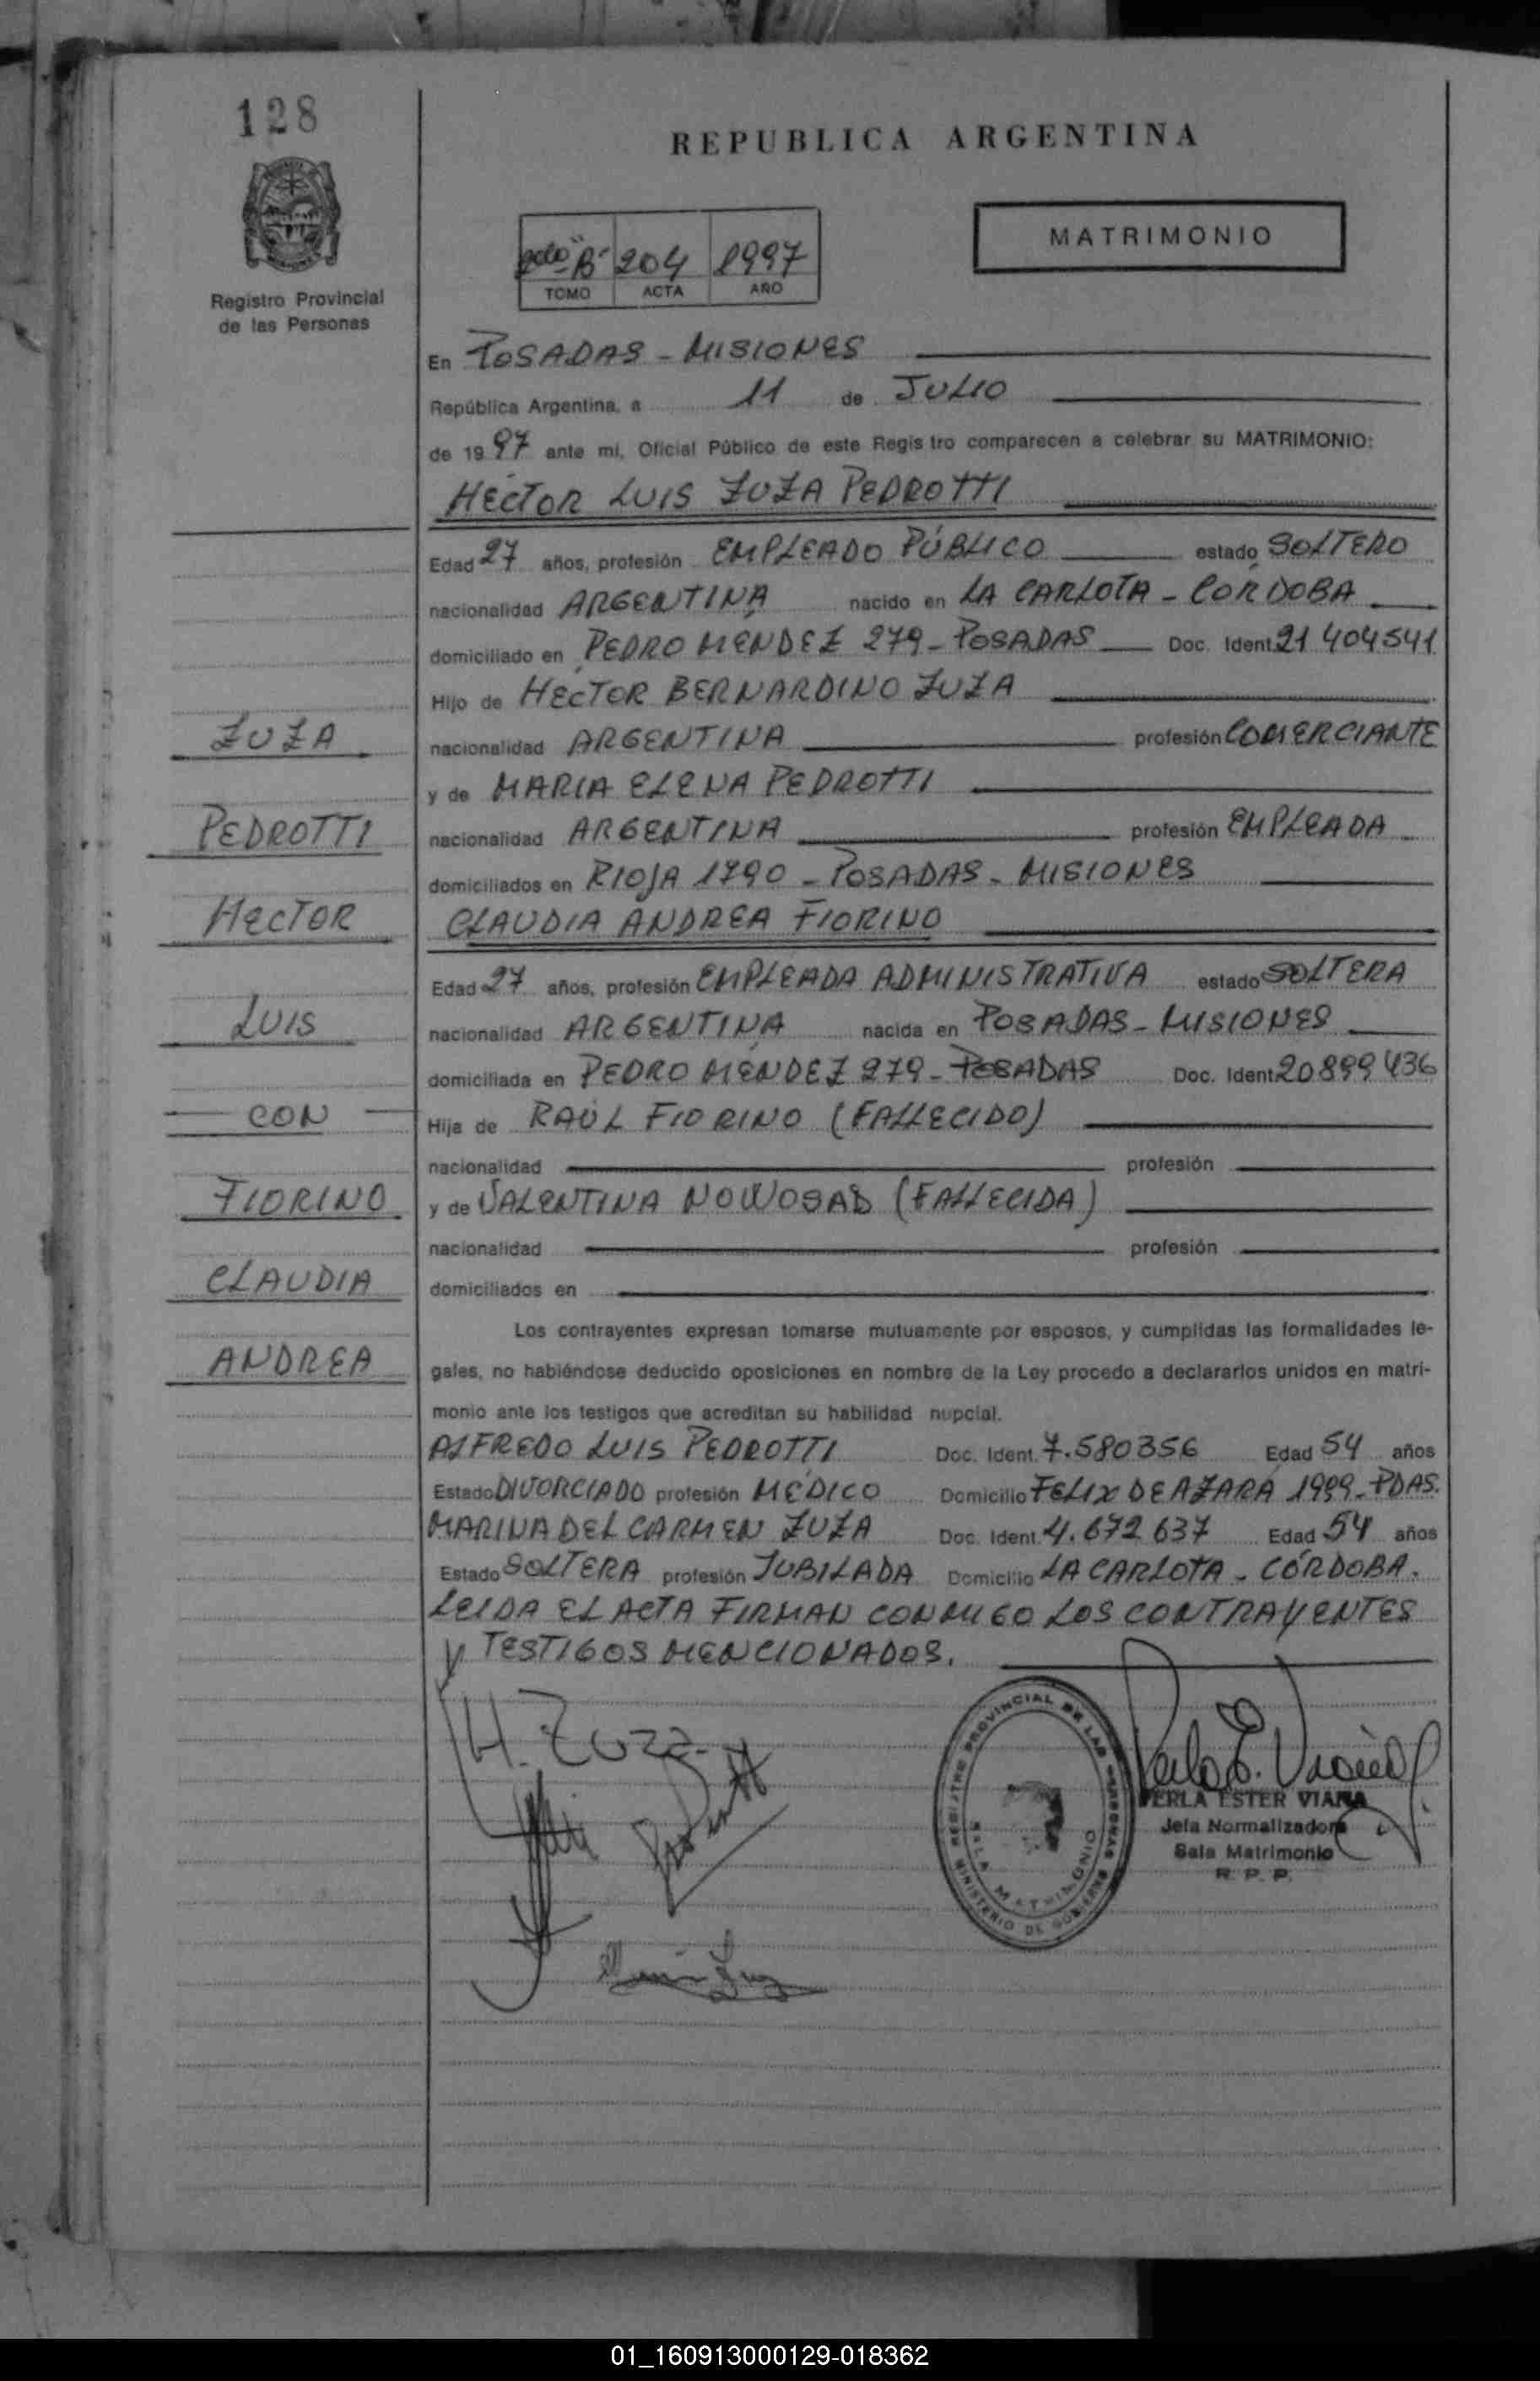 128
REPUBLICA ARGENTINA
MATRIMONIO
"B" 204 1997
TOMO ACTA AÑO
Registro Provincial
de las Personas
En POSADAS - MISIONES
República Argentina, a 11 de JULIO
de 1997 ante mi, Oficial Público de este Registro comparecen a celebrar su MATRIMONIO:
HÉCTOR LUIS ZUZA PEDROTTI
Edad 27 años, profesión EMPLEADO PÚBLICO estado SOLTERO
nacionalidad ARGENTINA nacido en LA CARLOTA - CÓRDOBA
domiciliado en PEDRO MÉNDEZ 279 - POSADAS Doc. Ident. 21 404541
Hijo de HÉCTOR BERNARDINO ZUZA
ZUZA
nacionalidad ARGENTINA profesión COMERCIANTE
y de MARIA ELENA PEDROTTI
PEDROTTI
nacionalidad ARGENTINA profesión EMPLEADA
domiciliados en RIOJA 1790 - POSADAS - MISIONES
HECTOR
CLAUDIA ANDREA FIORINO
Edad 27 años, profesión EMPLEADA ADMINISTRATIVA estado SOLTERA
LUIS
nacionalidad ARGENTINA nacida en POSADAS - MISIONES
domiciliada en PEDRO MÉNDEZ 279 - POSADAS Doc. Ident. 20899436
CON
Hija de RAÚL FIORINO (FALLECIDO)
nacionalidad profesión
FIORINO
y de VALENTINA NOWOSAD (FALLECIDA)
nacionalidad profesión
CLAUDIA
domiciliados en
Los contrayentes expresan tomarse mutuamente por esposos, y cumplidas las formalidades le-
ANDREA
gales, no habiéndose deducido oposiciones en nombre de la Ley procedo a declararlos unidos en matri-
monio ante los testigos que acreditan su habilidad nupcial.
ALFREDO LUIS PEDROTTI Doc. Ident. 7.580356 Edad 54 años
Estado DIVORCIADO profesión MÉDICO Domicilio FELIX DE AZARA 1999 - PDAS.
MARINA DEL CARMEN ZUZA Doc. Ident. 4.672637 Edad 54 años
Estado SOLTERA profesión JUBILADA Domicilio LA CARLOTA - CÓRDOBA.
LEIDA EL ACTA FIRMAN CONMIGO LOS CONTRAYENTES
Y TESTIGOS MENCIONADOS.
H. Zuza
REGISTRO PROVINCIAL DE LAS PERSONAS
SALA MATRIMONIO
MINISTERIO DE GOBIERNO
PERLA ESTER VIANA
Jefa Normalizadora
Sala Matrimonio
R. P. P.
01_160913000129-018362